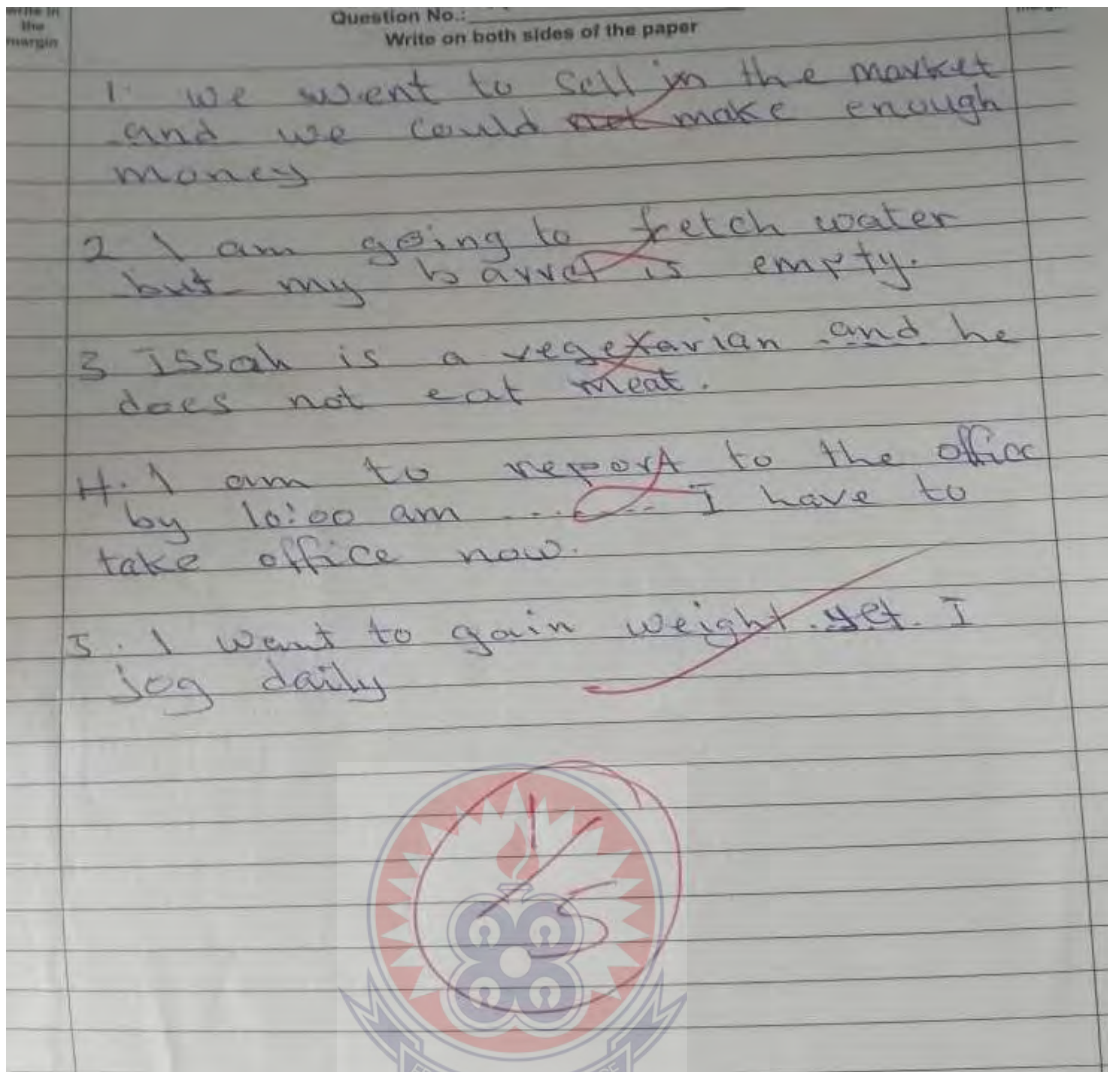 write in
the
margin
Question No.:
Write on both sides of the paper
1. we went to sell in the market
and we could not make enough
money
2 I am going to fretch water
but my barrel is empty.
3 Issah is a vegetarian and he
does not eat meat.
4. I am to report to the office
by 10:00 am ......... I have to
take office now.
5. I want to gain weight. yet. I
jog daily
1/5